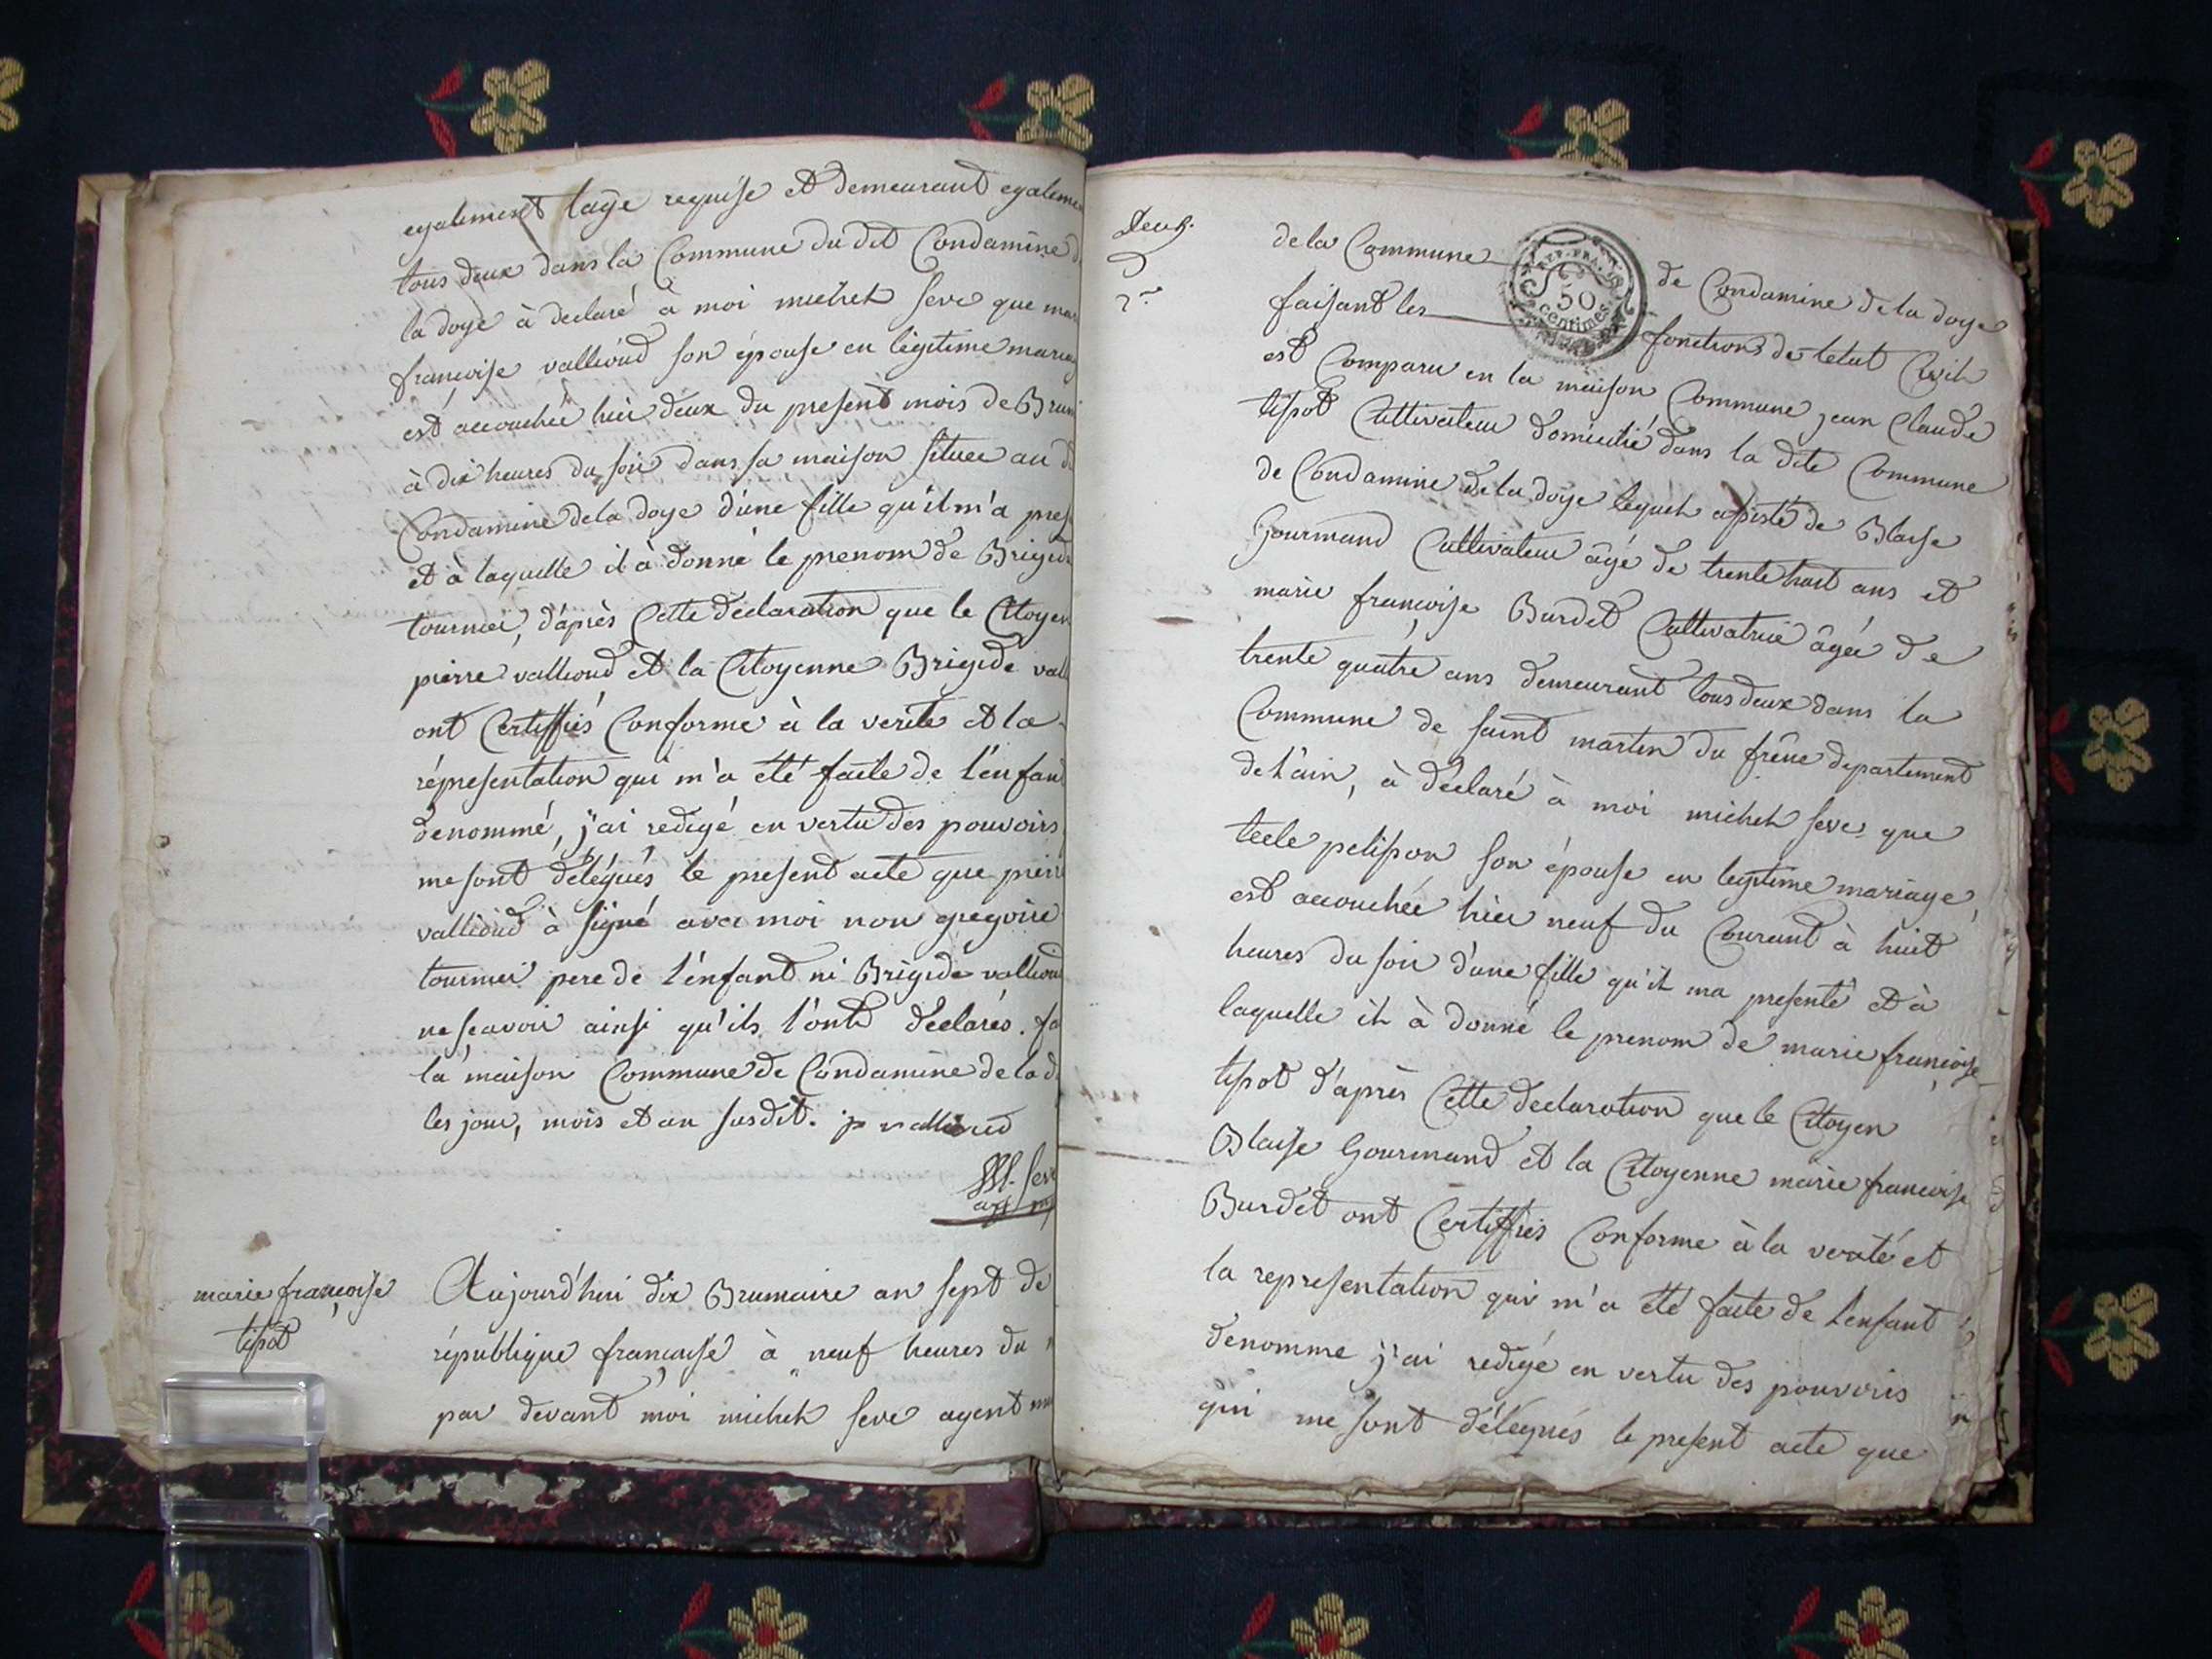 egalement l'age requise et demeurant egaleme
tous deux dans la Commune du dit Condamine d
la doye à declaré à moi michel seve que ma
françoise vallioud son épouse en légitime maria
est accouchée hier deux du present mois de Brum
à dix heures du soir dans sa maison située au d
Condamine de la doye d'une fille qu'il m'a pres
et à laquelle il à donné le prenom de Brigid
tournier, d'après Cette declaration que le Citoyen
pierre vallioud et la Citoyenne Brigide vall
ont Certiffiés Conforme à la verité et la
réprésentation qui m'a été faite de l'enfant
denommé, j'ai redigé en vertu des pouvoirs
me sont délégués le present acte que pierre
vallioud à signé avec moi non gregoire
tournier pere de l'énfant ni Brigide vallioud
ne sçavoir ainsi qu'ils l'ont déclarés. fa
la maison Commune de Condamine de la d
les jour, mois et an susdit. p vallioud
M. Seve
marie françoise
tissot
Aujourd'hui dix Brumaire an sept de
république française à neuf heures du
par devant moi michel seve agent mu
Deux.
de la Commune de Condamine de la doye
50
centimes
faisant les fonctions de l'etat Civil
est Comparu en la maison Commune jean Claude
tissot Cultivateur domicilié dans la dite Commune
de Condamine de la doye lequel assisté de Blaise
Gourmand Cultivateur âgé de trente huit ans et
marie françoise Burdet Cultivatrice âgée de
trente quatre ans demeurant tous deux dans la
Commune de saint martin du frêne departement
de l'ain, à déclaré à moi michel seve que
tecle pelisson son épouse en legitime mariage,
est accouchée hier neuf du Courant à huit
heures du soir d'une fille qu'il ma presenté et à
laquelle il à donné le prenom de marie françoise
tissot d'après Cette declaration que le Citoyen
Blaise Gourmand et la Citoyenne marie françoise
Burdet ont Certiffiés Conforme à la verité et
la representation qui m'a été faite de l'enfant
denomme j'ai redigé en vertu des pouvoirs
qui me sont délégués le present acte que